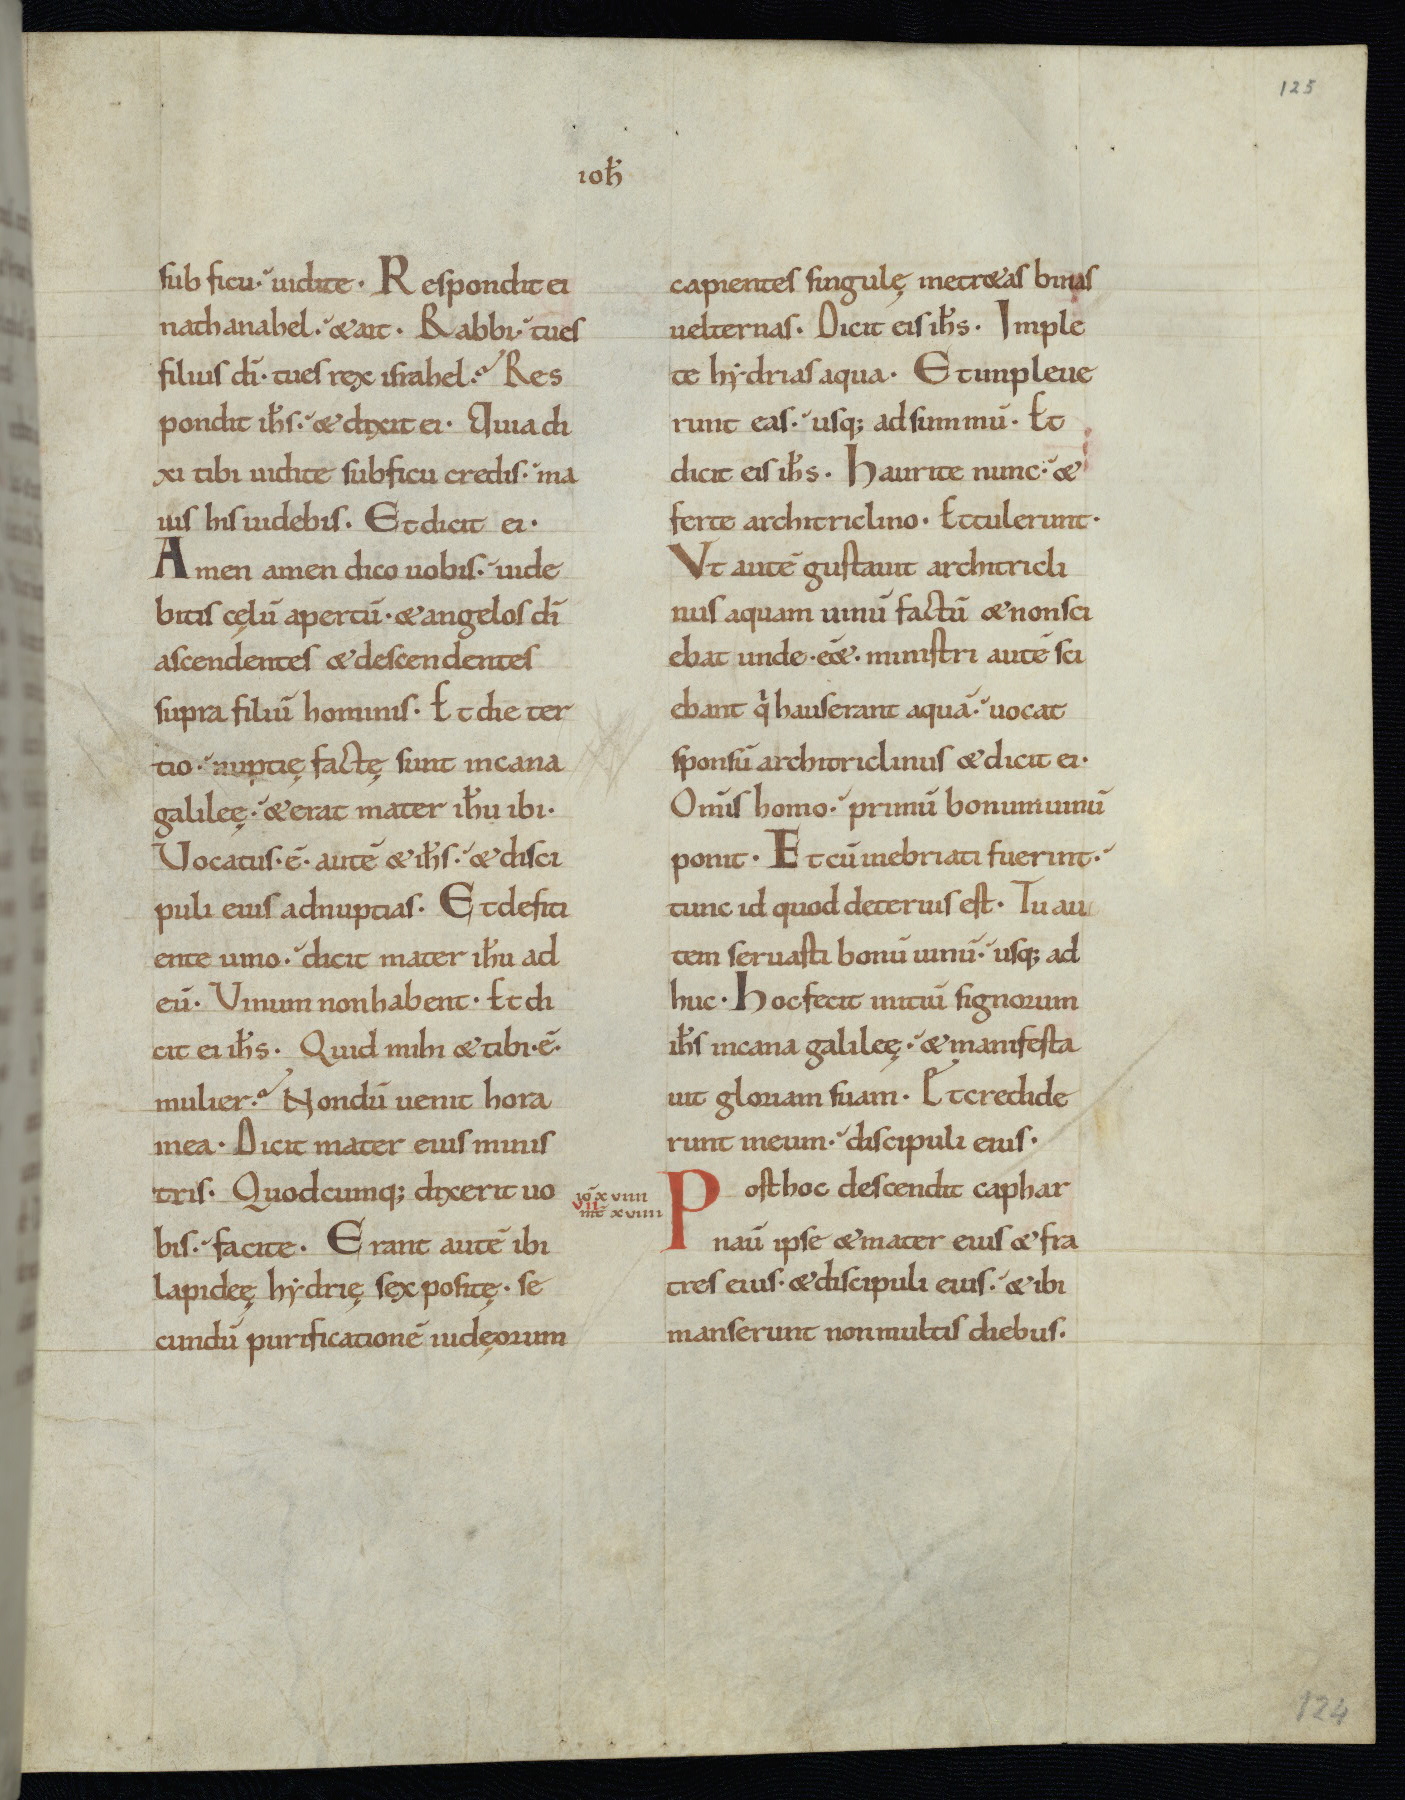 125
ioħ
sub ficu· uidi te· Respondit ei
nathanahel· & ait· Rabbi· tu es
filius dī· tu es rex israhel· Res
pondit ihs· & dixit ei· Quia di
xi tibi uidi te sub ficu credis· ma
ius his uidebis· Et dicit ei·
Amen amen dico uobis· uide
bitis cęlū apertū· & angelos dī
ascendentes & descendentes
supra filiū hominis· Et die ter
tio· nuptię factę sunt in cana
galileę· & erat mater ihu ibi·
Vocatus· ē· autē & ihs· & disci
puli eius ad nuptias· Et defiti
ente uino· dicit mater ihu ad
eū· Vinum non habent· Et di
cit ei ihs· Quid mihi & tibi· ē·
mulier· Nondū uenit hora
mea· Dicit mater eius minis
tris· Quodcumq; dixerit uo
bis· facite· Erant autē ibi
lapideę hẏdrię sex positę· se
cundū purificationē iudęorum
capientes singulę metr&as binas
uel ternas· Dicit eis ihs· Imple
te hẏdrias aqua· Et impleue
runt eas· usq; ad summū· Et
dicit eis ihs· Haurite nunc· &
ferte architriclino· Et tulerunt·
Vt autē gustauit architricli
nus aquam uinū factū & non sci
ebat unde· eēt· ministri autē sci
ebant qi hauserant aquā· uocat
sponsū architriclinus & dicit ei·
Omīs homo· primū bonum uinū
ponit· Et cū inebriati fuerint·
tunc id quod deterius est· Tu au
tem seruasti bonū uinū· usq; ad
huc· Hoc fecit initiū signorum
ihs in cana galileę· & manifesta
uit gloriam suam· Et credide
runt in eum· discipuli eius·
iō xviiii
vii
mt̄ xviiii
Post hoc descendit caphar
naū ipse & mater eius & fra
tres eius· & discipuli eius· & ibi
manserunt non multis diebus·
124